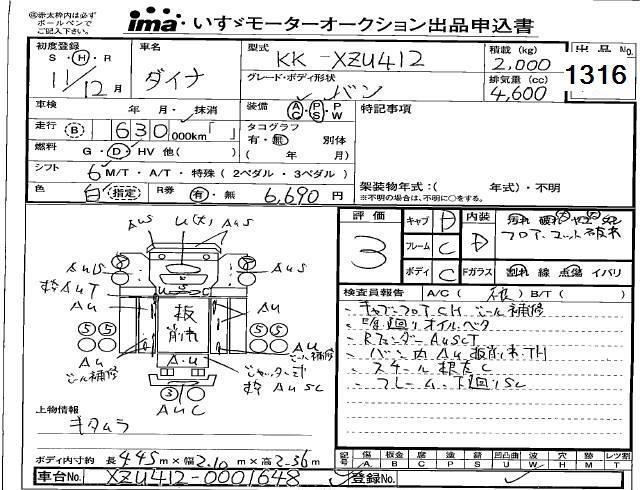 ㊟赤太枠内は必ず
ボールペンで
ご記入下さい。
ima いすゞモーターオークション出品申込書
初度登録 車名 型式 KK-XZU412 積載(kg) 2,000 出品No.
S・H・R 11/12月 ダイナ グレード・ボディ形状 バン 排気量(cc) 4,600 1316
車検 年 月・抹消 装備 AC・PS・PW 特記事項
走行 B 630,000km「 」 タコグラフ 有・無 別体
燃料 G・D・HV 他( ) ( 年 月)
シフト 6 M/T・A/T・特殊(2ペダル・3ペダル) 架装物年式:( 年式)・不明
色 白 指定 R券 有・無 6,690円 ※不明の場合は、不明に○をする。
AuS U(大) AuS
AuS AuS
AuT
Au 板 Au
削れ
5 5 5 5
Au A・U Au
ビール補修
AuSC
3
AuC
評価 3 キャブ D 内装 D
フレーム C フロアマット破れ
ボディ C Fガラス 割れ 線 点傷 イバリ
検査員報告 A/C( ) B/T( )
キャブフロアCH ビール補修
オイルベタ
RフェンダーAuSCT
バン内Au板削れTH
フレーム下廻りSC
上物情報
キタムラ
ボディ内寸約 長445m×幅2.10m×高2.36m
記号 傷A 板金B 腐C 塗P 錆S 凹凸曲U 波W 穴H 跡M レンズ割T
車台No. XZU412-0001648 登録No.